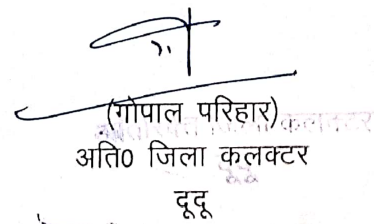 (गोपाल परिहार)
अति0 जिला कलक्टर
दूदू